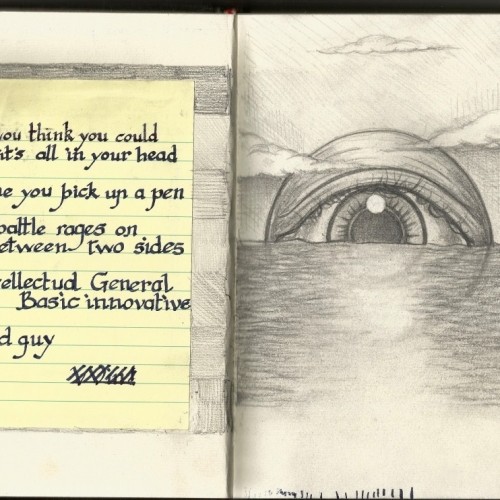 you think you could
it's all in your head
me you pick up a pen
battle rages on
etween two sides
tellectual General
Basic innovative
d guy